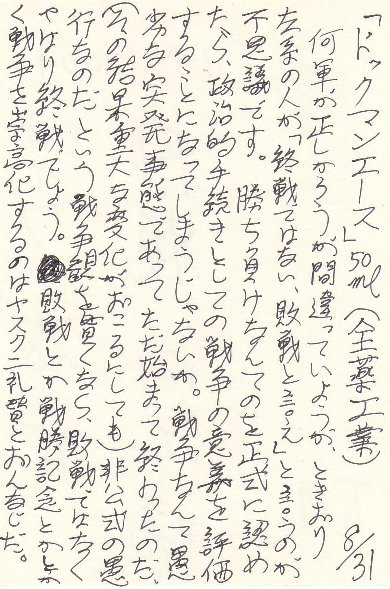 「ドックマンエース」50ml（全薬工業）
8/31
何軍が正しかろうが間違っていようが、ときおり
左系の人が「終戦ではない、敗戦と言え」と言うのが
不思議です。勝ち負けなんてのを正式に認め
たら、政治的手続きとしての戦争の意義を評価
することになってしまうじゃないか。戦争なんて愚
劣な突発事態であってただ始まって終わったのだ、
（その結果重大な変化がおこるにしても）非公式の愚
行なのだという戦争観を貫くなら、敗戦ではなく
やはり終戦でしょう。敗戦とか戦勝記念とかとか
く戦争を崇高化するのはヤスクニ礼賛とおんなじだ。